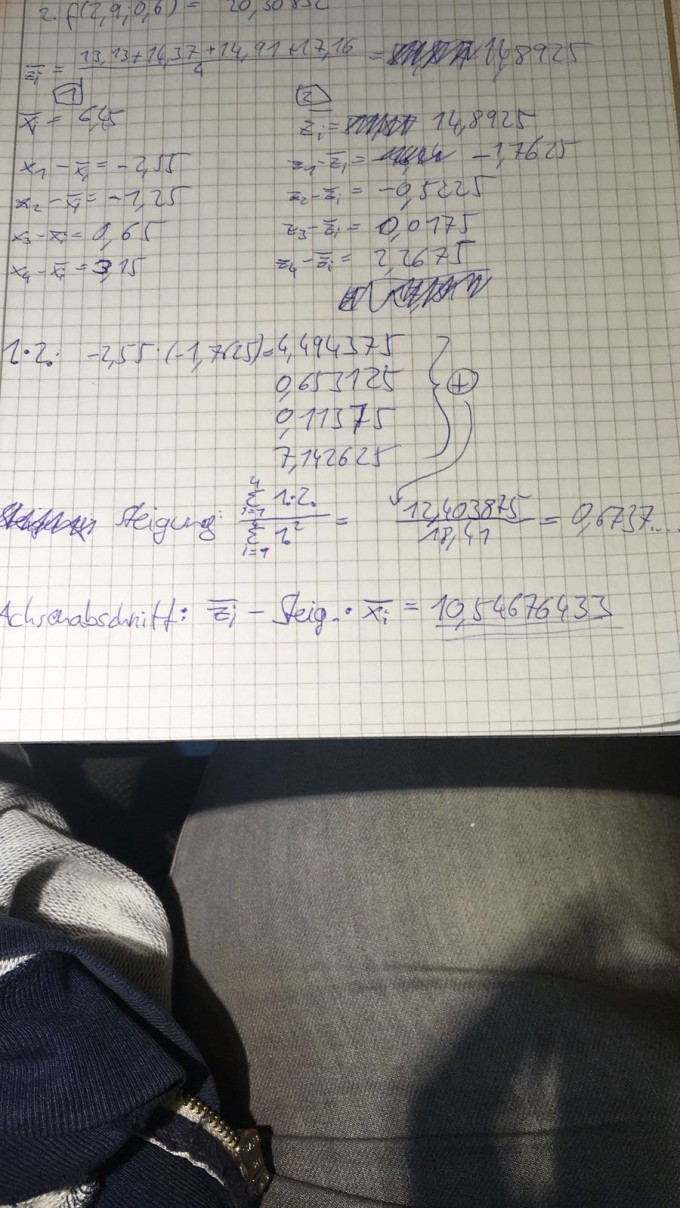 2. f(2,9;0,6) = 20,30832
z̄ᵢ = (13,13+14,37+14,91+17,16)/4 = 14,8925
1 2
x̄ᵢ = 6,45 z̄ᵢ = 14,8925
x₁ - x̄ᵢ = -2,55 z₁-z̄ᵢ = -1,7625
x₂ - x̄ᵢ = -1,25 z₂-z̄ᵢ = -0,5225
x₃ - x̄ᵢ = 0,65 z₃-z̄ᵢ = 0,0175
x₄ - x̄ᵢ = 3,15 z₄-z̄ᵢ = 2,2675
1.·2.: -2,55·(-1,7625)=4,494375
0,653125
0,11375
7,142625
+
Steigung: (∑ᵢ₌₁⁴ 1.·2.)/(∑ᵢ₌₁⁴ 1.²) = 12,403875/18,41 = 0,6737...
Achsenabschnitt: z̄ᵢ - Steig. · x̄ᵢ = 10,54676433